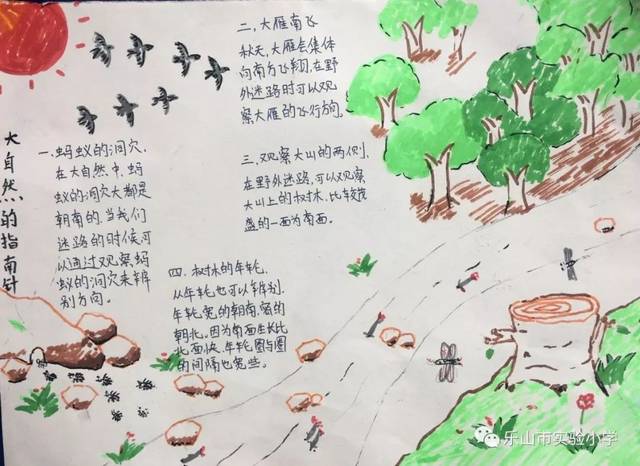 大自然的指南针
一.蚂蚁的洞穴.
在大自然中.蚂
蚁的洞穴大都是
朝南的.当我们
迷路的时候.可
以通过观察蚂
蚁的洞穴来辨
别方向。
二,大雁南飞
秋天,大雁会集体
向南方飞翔,在野
外迷路时可以观
察大雁的飞行方向。
三,观察大山的两侧,
在野外迷路,可以观察
大山上的树木.比较茂
盛的一面为南面。
四.树木的年轮,
从年轮也可以辨别.
年轮宽的朝南,窄的
朝北。因为南面生长比
北面快.年轮圈与圈
的间隔也宽些。
乐山市实验小学